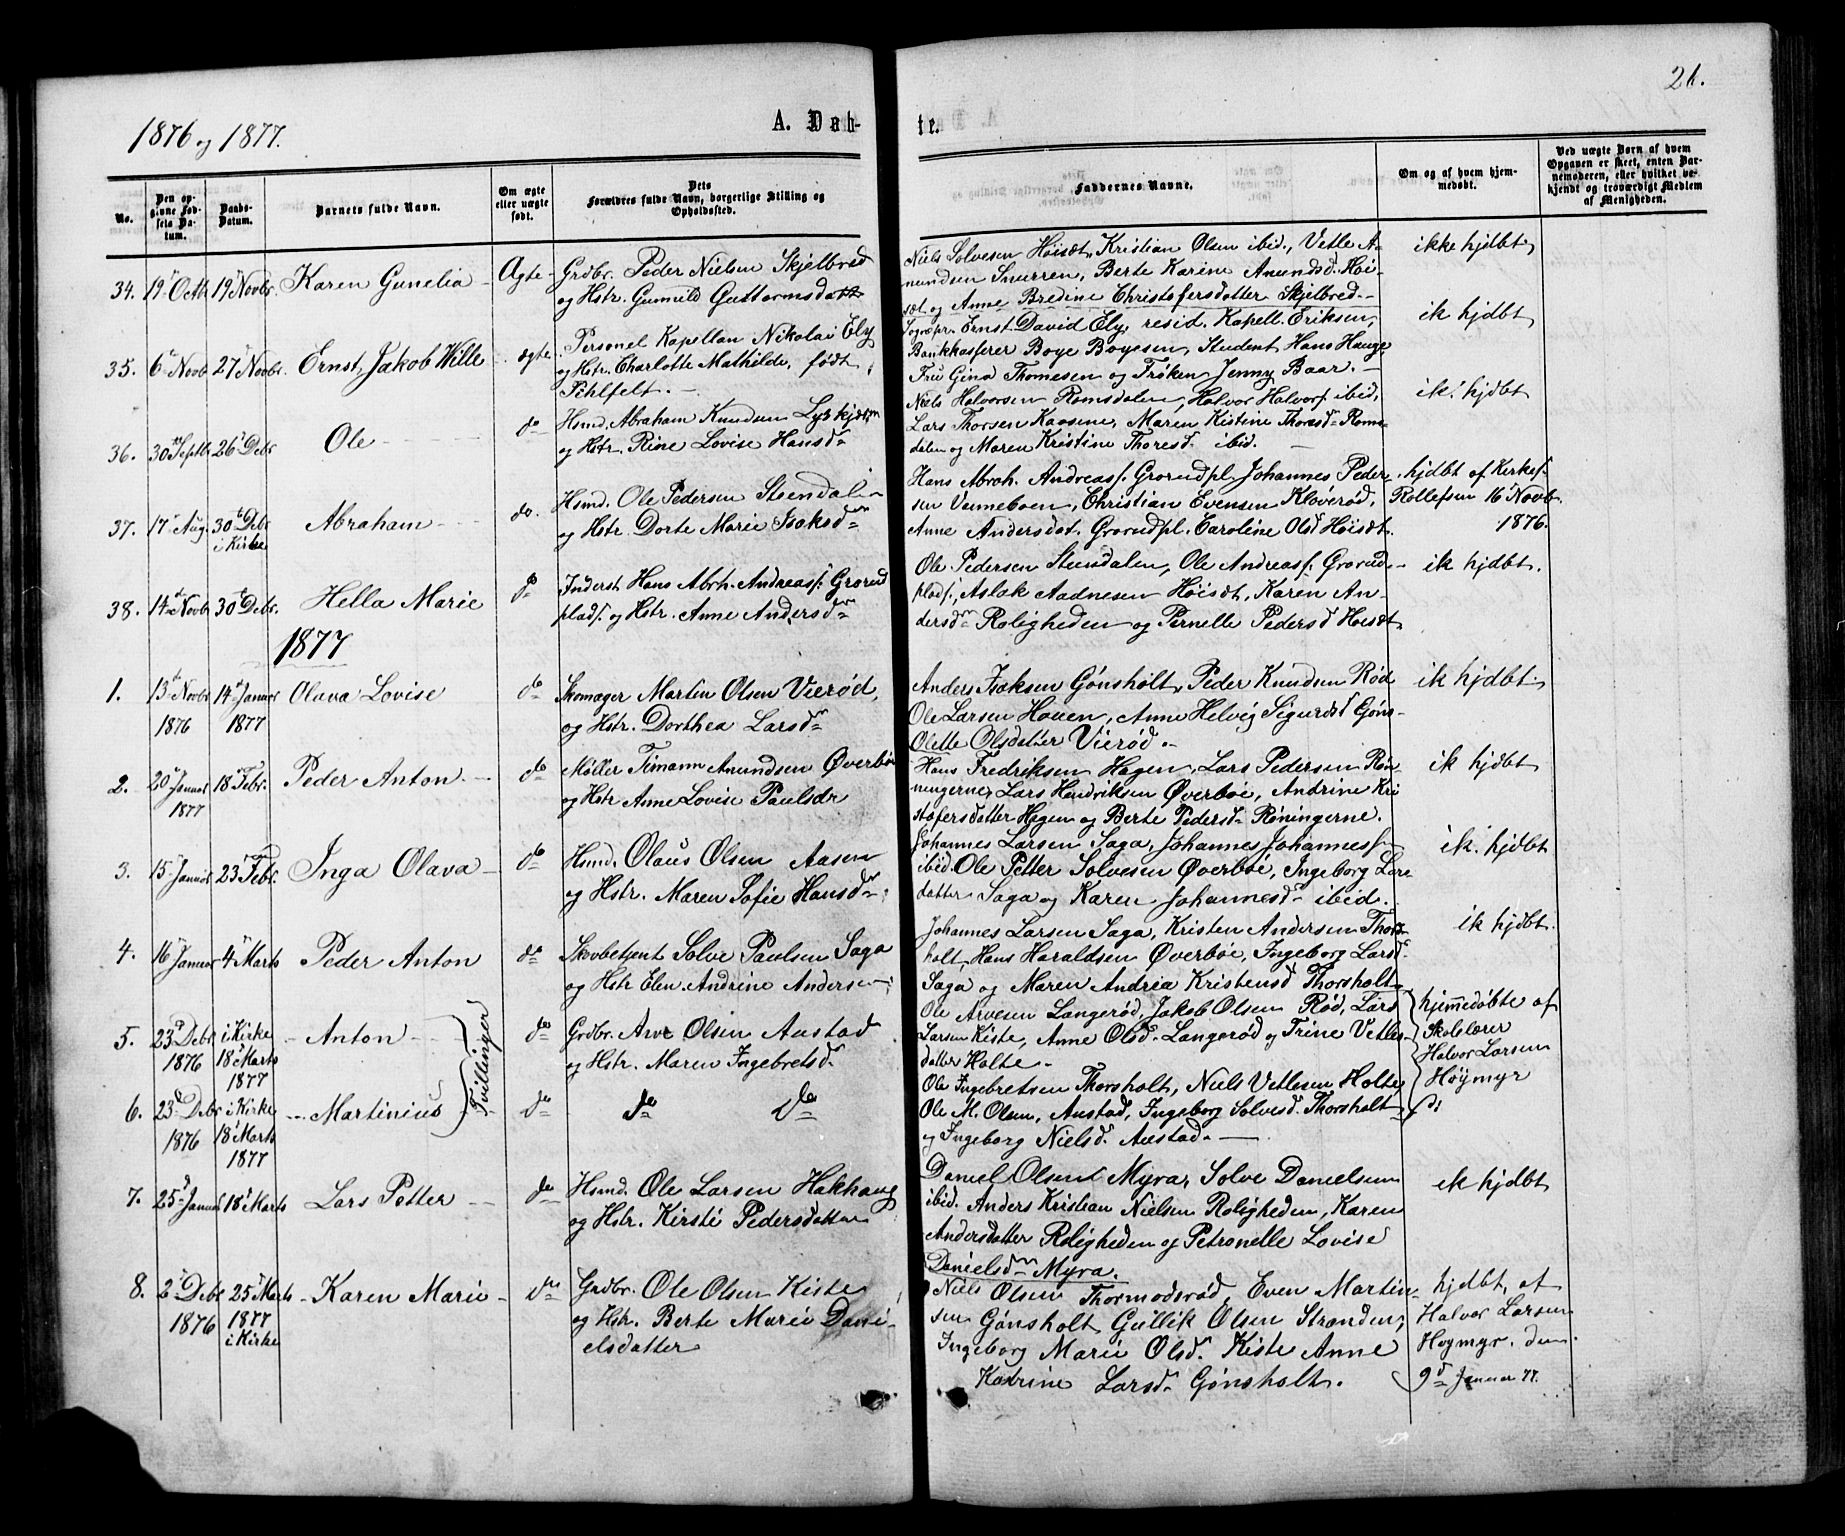 21.
1876 og 1877.
A. Døb-
te.
No.
Den op-
givne Fød-
sels Da-
tum.
Daabs-
Datum.
Barnets fulde Navn.
Om ægte
eller uægte
født.
Dets
Forældres fulde Navn, borgerlige Stilling og
Opholdssted.
Faddernes Navne.
Om og af hvem hjem-
medøbt.
Ved uægte Børn af hvem
Opgaven er skeet, enten Bar-
nemoderen, eller hvilket be-
kjendt og troværdigt Medlem
af Menigheden.
34. 19 Octb 19 Novbr. Karen Gunelia Ægte Grdbr. Peder Nielsen Skjelbred
og Hstr. Gunnild Guttormsdatt
Niels Solvesen Høisæt, Kristian Olsen ibid., Vetle A-
mundsen Snurren, Berte Karine Amundsd. Høi-
sæt og Anne Bredine Christofersdatter Skjelbred
ikke hjdbt
35. 6 Novb 27 Novbr. Ernst Jakob Wille ægte Personel Kapellan Nikolai Ely
og Hstr. Charlotte Mathilde, født
Pihlfelt.
Sognepr. Ernst David Ely, resid. Kapell. Eriksen,
Bankkasserer Boye Boyesen, Student Hans Hauge,
Fru Gina Thomesen og Frøken Jenny Baar.
ik hjdbt
36. 30 Septb 26 Debr Ole do Hsmd. Abraham Knudsen Lyskjærn
og Hstr. Rine Lovise Hansdr
Niels Halvorsen Romsdalen, Halvor Halvors. ibid,
Lars Thorsen Kaasene, Maren Kistine Thoresd. Roms-
dalen og Maren Kristine Thoresd. ibid.
ik. hjdbt
37. 17 Aug. 30 Debr Abraham do. Hsmd. Ole Pedersen Steendalen
i Kirke
og Hstr. Dorte Marie Isaksdr
Hans Abrah. Andreass. Grorudpl, Johannes Peder-
sen Venneboen, Christian Evensen Kløverød,
Anne Andersdat. Grorudpl. Caroline Olsd Høisæt.
hjdbt af Kirkes.
Rollefsen 16 Novb.
1876.
38. 14 Novb 30 Debr. Hella Marie do Inderst Hans Abrh. Andreass. Grorud
plads. og Hstr. Anne Andersdr
Ole Pedersen Steendalen, Ole Andreass. Grorud-
plads., Aslak Aadnesen Høisæt, Karen An-
dersdr Roligheden og Pernelle Pedersd Høisæt
ik hjdbt.
1877
1. 13 Novbr 14 Januar Olava Lovise do Skomager Martin Olsen Vierød,
1876 1877
og Hstr. Dorthea Larsdr
Anders Isaksen Gønsholt, Peder Knudsen Rød
Ole Larsen Houen, Anne Helvig Sigurdsd Gøns-
Olette Olsdatter Vierød.
ik hjdbt.
2. 20 Januar 18 Febr. Peder Anton do Møller Timann Amundsen Øverbø
1877
og Hstr Anne Lovise Paulsdr
Hans Fredriksen Hagen, Lars Pedersen Røn-
ningerne, Lars Hendriksen Øverbøe, Andrine Kri
stofersdatter Hagen og Berte Pedersd. Røningerne.
ik hjdbt
3. 15 Januar 23 Febr. Inga Olava do Hsmd. Olaus Olsen Aasen
og Hstr. Maren Sofie Hansdr
Johannes Larsen Saga, Johannes Johanness.
ibid. Ole Petter Solvesen Øverbøe, Ingeborg Lars
datter Saga og Karen Johannesd. ibid.
ik. hjdbt
4. 16 Januar 4 Marts Peder Anton do Skovbetjent Solve Paulsen Saga
og Hstr Elen Andrine Andersen
Johannes Larsen Saga, Kristen Andersen Thors
holt, Hans Haraldsen Øverbøe, Ingeborg Larsd.
Saga og Maren Andria Kristensd Thorsholt
ik hjdbt.
5. 23 Debr i Kirke Anton do Grdbr. Arve Olsen Austad
1876 18 Marts
1877
og Hstr. Maren Ingebretsd.
Tvillinger
Ole Arvesen Langerød, Jakob Olsen Rød, Lars
Larsen Kiste, Anne Olsd. Langerød og Trine Vetles-
datter Holte.
hjemmedøbte af
Skolelærer
Halvor Larsen
Høymyr
6. 23 Debr i Kirke Martinius do do do
1876 18 Marts
1877
Ole Ingebretsen Thorsholt, Niels Vetlesen Holte,
Ole M. Olsen, Austad, Ingeborg Solvesd. Thorsholt
og Ingeborg Nielsd. Austad.
7. 25 Januar 18 Marts Lars Petter do Hsmd. Ole Larsen Hakhaug
og Hstr. Kirsti Pedersdatter
Daniel Olsen Myra, Solve Danielsen
ibid. Anders Kristian Nielsen Roligheden, Karen
Andersdatter Roligheden og Petronelle Lovise
Danielsdr Myra.
ik hjdbt
8. 2 Debr 25 Marts Karen Marie do Grdbr. Ole Olsen Kiste
1876 1877
i Kirke
og Hstr. Berte Marie Dani-
elsdatter
Niels Olsen Thormodsrød, Even Martin-
sen Gønsholt Gullik Olsen Stranden,
Ingeborg Marie Olsd. Kiste Anne
Katrine Larsd. Gønsholt.
hjdbt, af
Halvor Larsen
Høymyr. den
9d Januar 77.